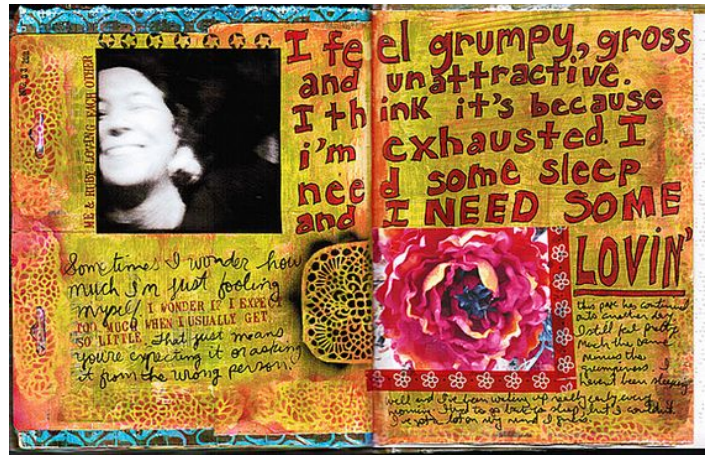 I feel grumpy, gross
and unattractive.
I think it's because
i'm exhausted. I
need some sleep
and I NEED SOME
LOVIN'
ME & RUBY LOVING EACH OTHER
Sometimes I wonder how
much I'm just fooling
myself. I WONDER IF I EXPECT
TOO MUCH WHEN I USUALLY GET
SO LITTLE. That just means
you're expecting it or asking
it from the wrong person.
this funk has continued
onto another day.
I still feel pretty
much the same
minus the
grumpiness. I
haven't been sleeping
well and I've been waking up really early every
morning. I try to go back to sleep, but I couldn't.
I've got a lot on my mind I guess.